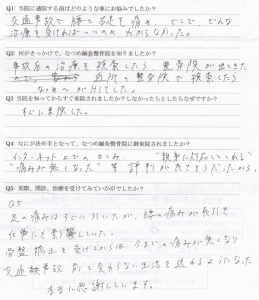 Q1: 当院に通院する前はどのような事にお悩みでしたか？
交通事故で腰と右足を痛め、どこで、どんな
治療を受ければいいのか分からなかった。
Q2: 何がきっかけで、なつめ鍼灸整骨院を知りましたか？
事故後の治療を検索したら、整骨院が出てきた
ので、近所の整骨院で検索したら
なつめさんがHitした。
Q3: 当院を知ってからすぐ来院されましたか？しなかったとしたらなぜですか？
すぐに来院した。
Q4: なにが決め手となって、なつめ鍼灸整骨院に御来院されましたか？
インターネット上での口コミ。"親身に対応してくれる"
"痛みが無くなった"等 評判が良さそうだったから。
Q5: 実際、問診、治療を受けてみていかがでしたか？
Q5
足の痛みはすぐに引いたが、腰の痛みが長引き
仕事にも影響していた。
骨盤矯正を受けてからは 今までの痛みが無くなり
交通事故 前と変わらない生活を送れるようになった
本当に感謝しています。